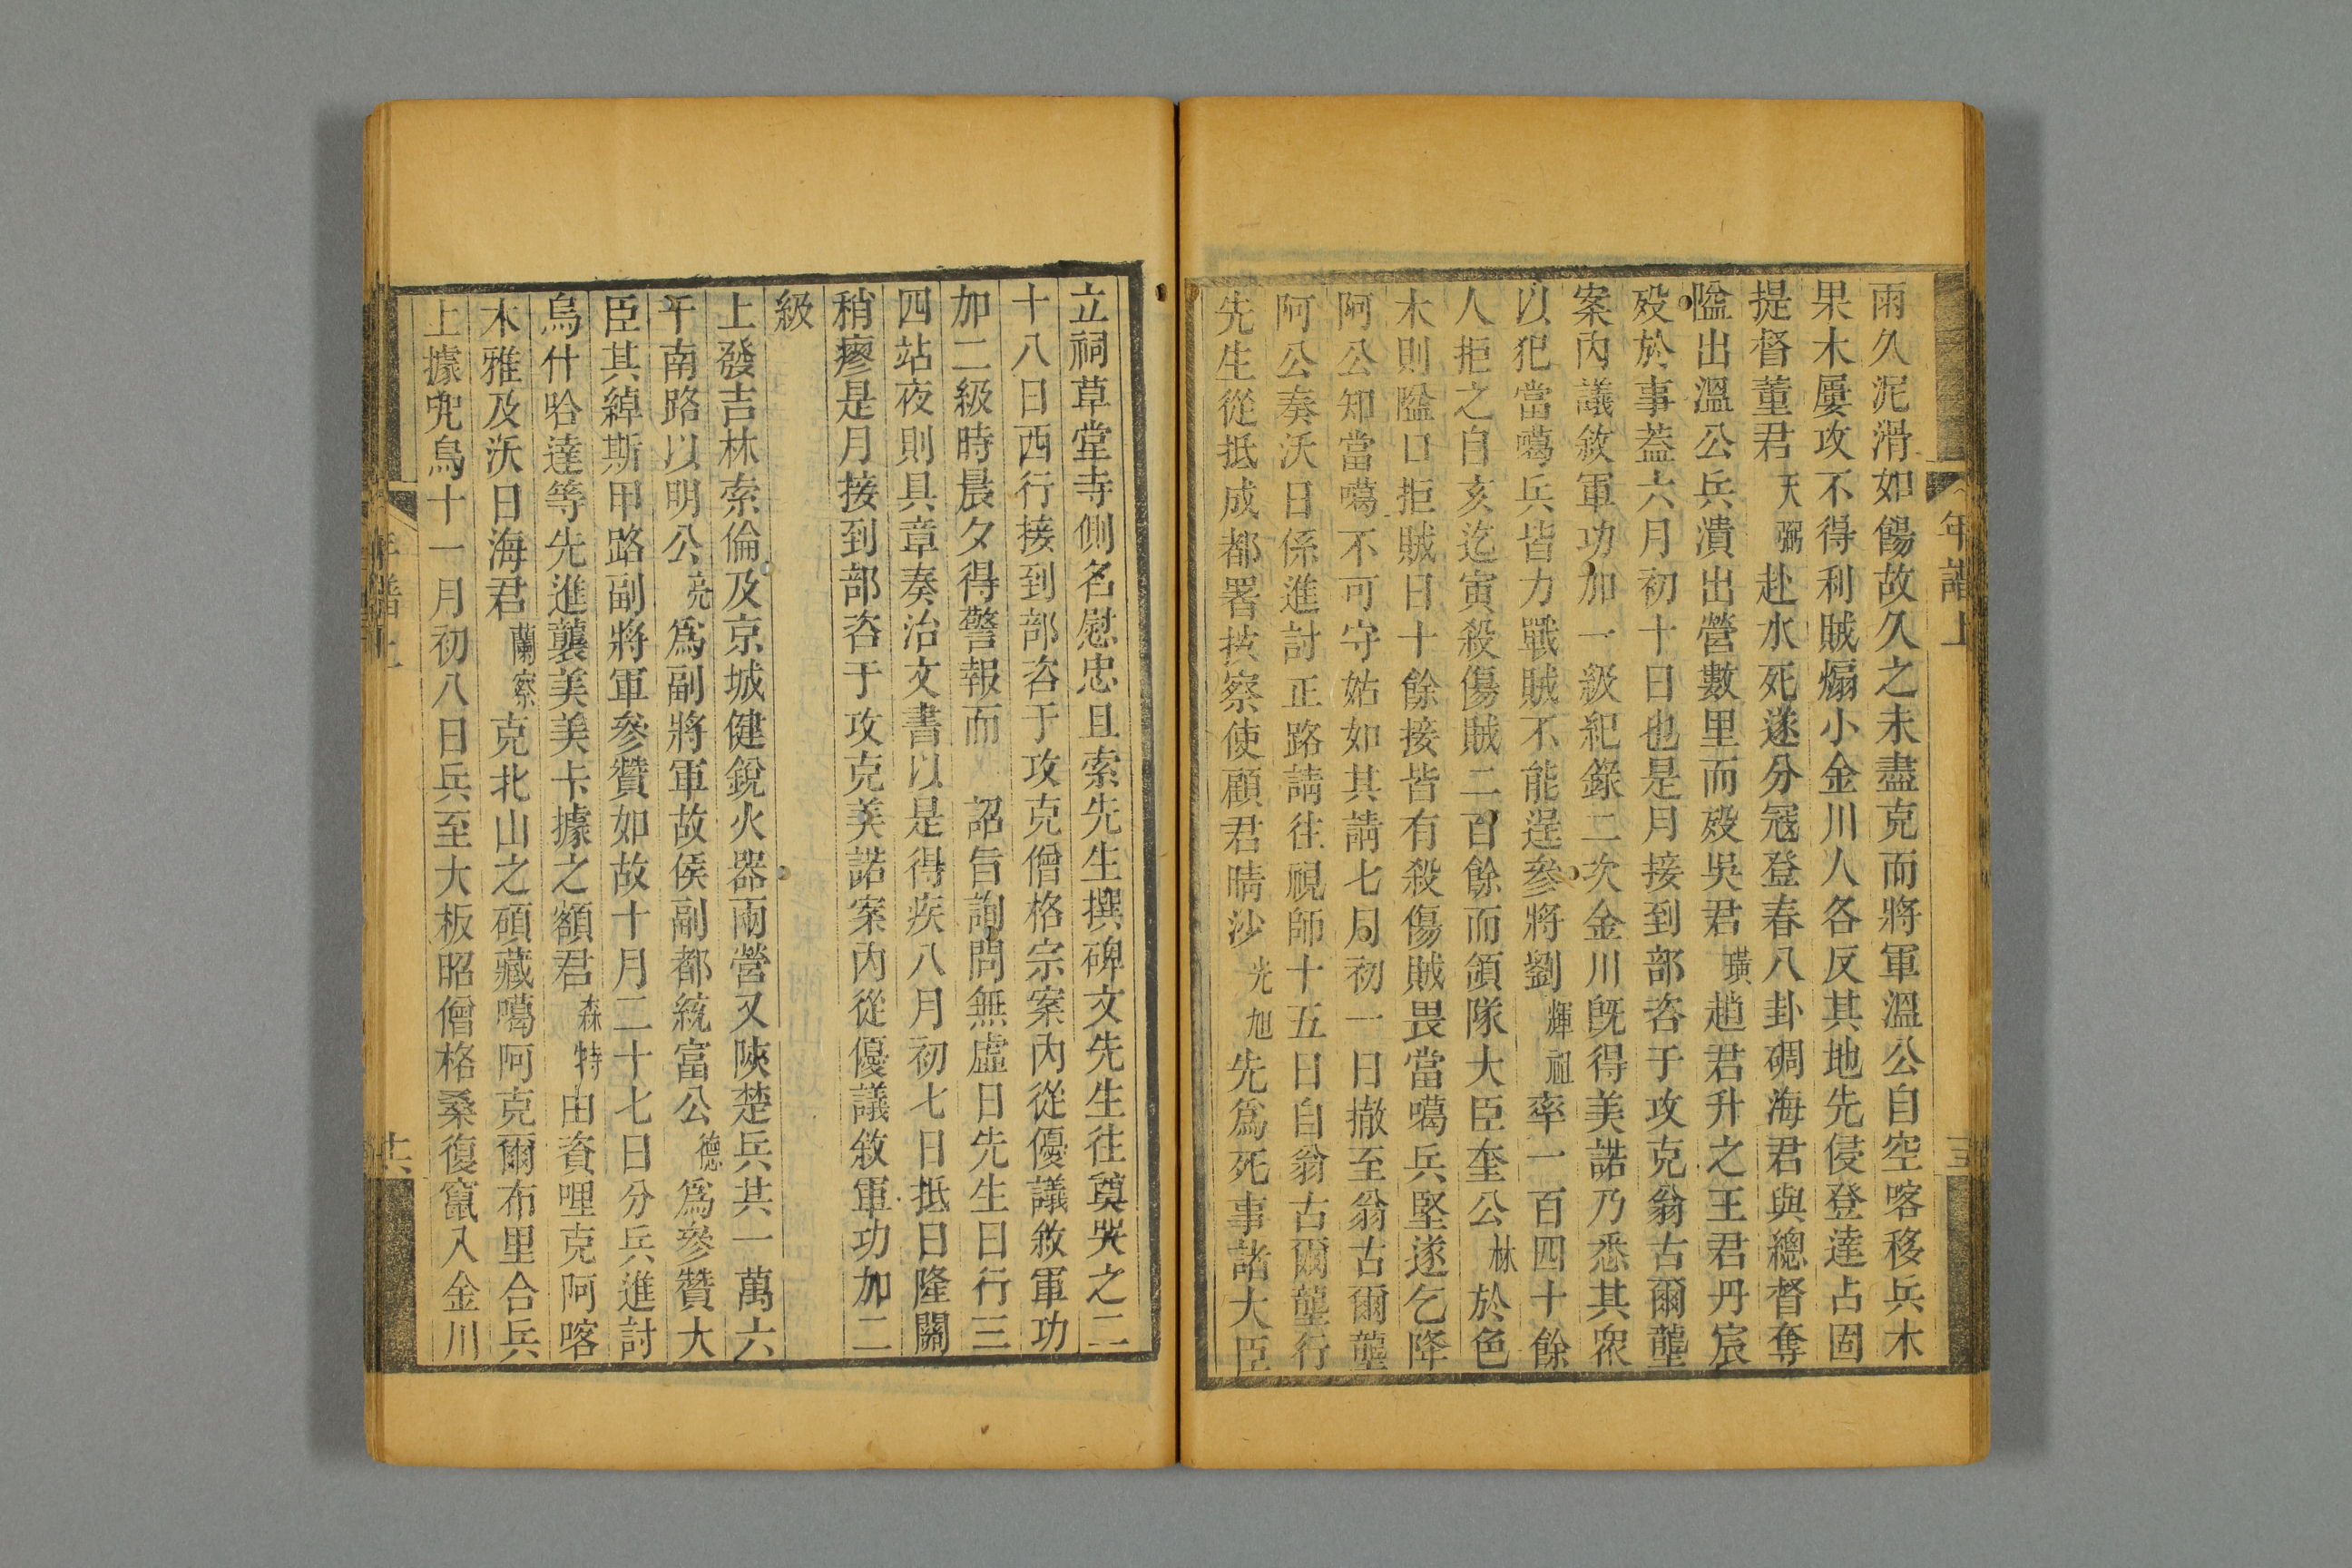 年譜上
雨久泥滑如餳故久之未盡克而將軍溫公自空喀移兵木
果木屢攻不得利賊煽小金川人各反其地先侵登達占固
提督董君天弼赴水死遂分寇登春八卦碉海君與總督奪
隘出溫公兵潰出營數里而歿吳君璜趙君升之王君丹宸
歿於事蓋六月初十日也是月接到部咨于攻克翁古爾壟
案內議敘軍功加一級紀錄二次金川旣得美諾乃悉其衆
以犯當噶兵皆力戰賊不能逞參將劉輝祖率一百四十餘
人拒之自亥迄寅殺傷賊二百餘而領隊大臣奎公林於色
木則隘口拒賊日十餘接皆有殺傷賊畏當噶兵堅遂乞降
阿公知當噶不可守姑如其請七月初一日撤至翁古爾壟
阿公奏沃日係進討正路請往視師十五日自翁古爾壟行
先生從抵成都署按察使顧君晴沙光旭先爲死事諸大臣
立祠草堂寺側名慰忠且索先生撰碑文先生往奠哭之二
十八日西行接到部咨于攻克僧格宗案內從優議敘軍功
加二級時晨夕得警報而 詔旨詢問無虛日先生日行三
四站夜則具章奏治文書以是得疾八月初七日抵日隆關
稍瘳是月接到部咨于攻克美諾案內從優議敘軍功加二
級
上發吉林索倫及京城健銳火器兩營又陝楚兵共一萬六
千南路以明公亮爲副將軍故侯副都統富公德爲參贊大
臣其綽斯甲路副將軍參贊如故十月二十七日分兵進討
烏什哈達等先進襲美美卡據之額君森特由資哩克阿喀
木雅及沃日海君蘭察克北山之碩藏噶阿克爾布里合兵
上據兜烏十一月初八日兵至大板昭僧格桑復竄入金川